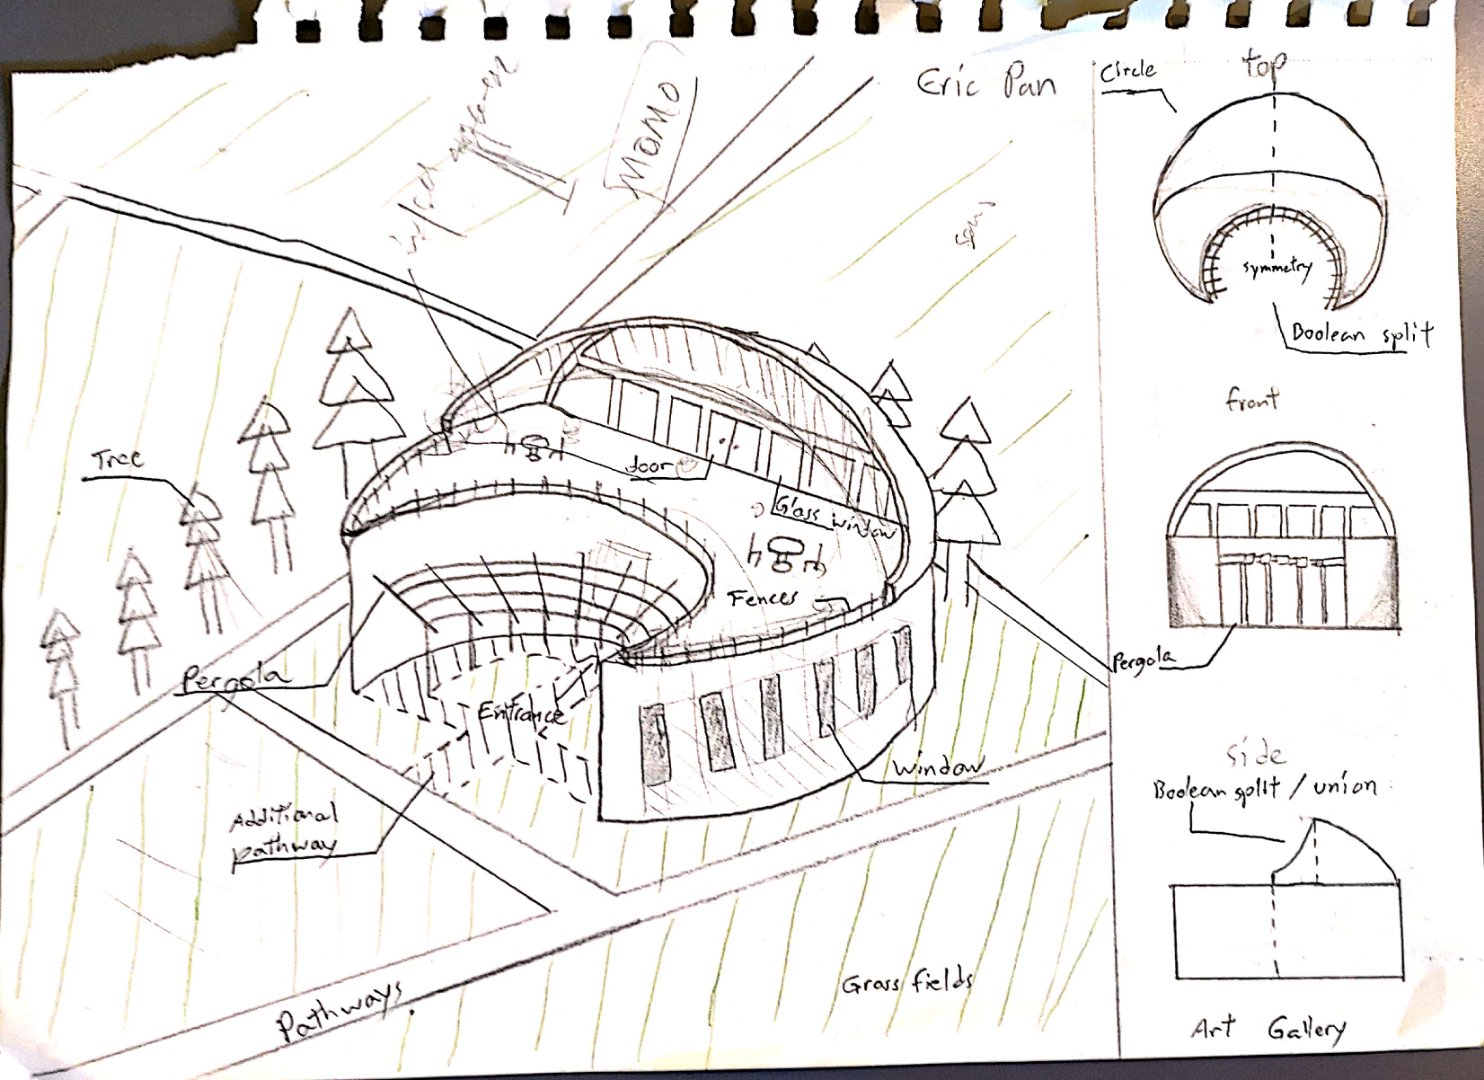 Eric Pan
MOMO
Tree
door
Glass window
Fences
Pergola
Entrance
window
Additional
pathway
Pathways
Grass fields
Circle
top
symmetry
Boolean split
front
Pergola
side
Boolean split / union
Art Gallery